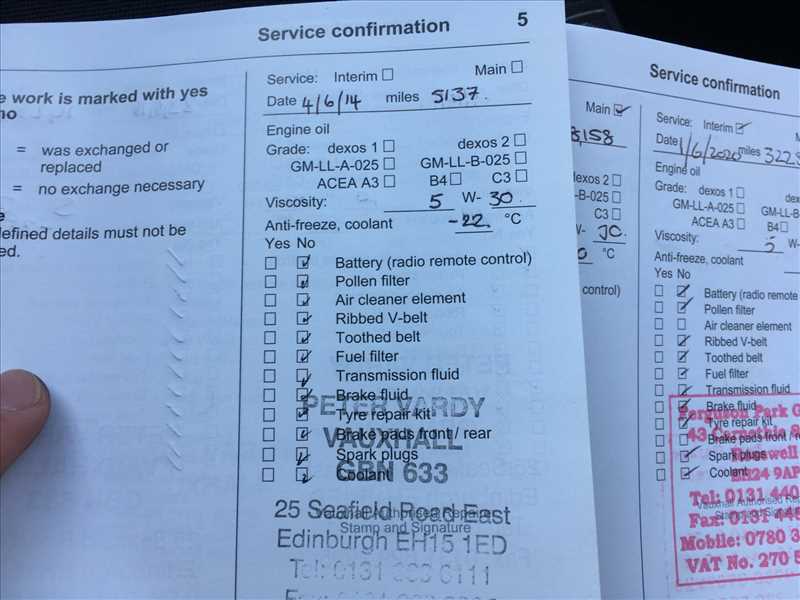 Service confirmation 5
e work is marked with yes
no
= was exchanged or
replaced
= no exchange necessary
e
efined details must not be
ed.
Service: Interim Main
Date 4/6/14 miles 5137.
Engine oil
Grade: dexos 1 dexos 2
GM-LL-A-025 GM-LL-B-025
ACEA A3 B4 C3
Viscosity: 5 W- 30.
Anti-freeze, coolant -22 °C
Yes No
Battery (radio remote control)
Pollen filter
Air cleaner element
Ribbed V-belt
Toothed belt
Fuel filter
Transmission fluid
Brake fluid
Tyre repair kit
Brake pads front / rear
Spark plugs
Coolant
Vauxhall Authorised Repairer
Stamp and Signature
PETER VARDY
VAUXHALL
GBN 633
25 Seafield Road East
Edinburgh EH15 1ED
Main
8,158
dexos 2
-B-025
C3
°C
control)
Service confirmation
Service: Interim M
Date 1/6/2020 miles 322
Engine oil
Grade: dexos 1 dex
GM-LL-A-025 GM-L
ACEA A3 B4
Viscosity: 5 W-
Anti-freeze, coolant
Yes No
Battery (radio remote
Pollen filter
Air cleaner element
Ribbed V-belt
Toothed belt
Fuel filter
Transmission fluid
Brake fluid
Tyre repair kit
Brake pads front / r
Spark plugs
Coolant
Vauxhall Authorised Rep
Stamp and Signa
Ferguson Park G
EH24 9AP
Tel: 0131 440
Fax: 0131 44
Mobile: 0780 3
VAT No. 270 5